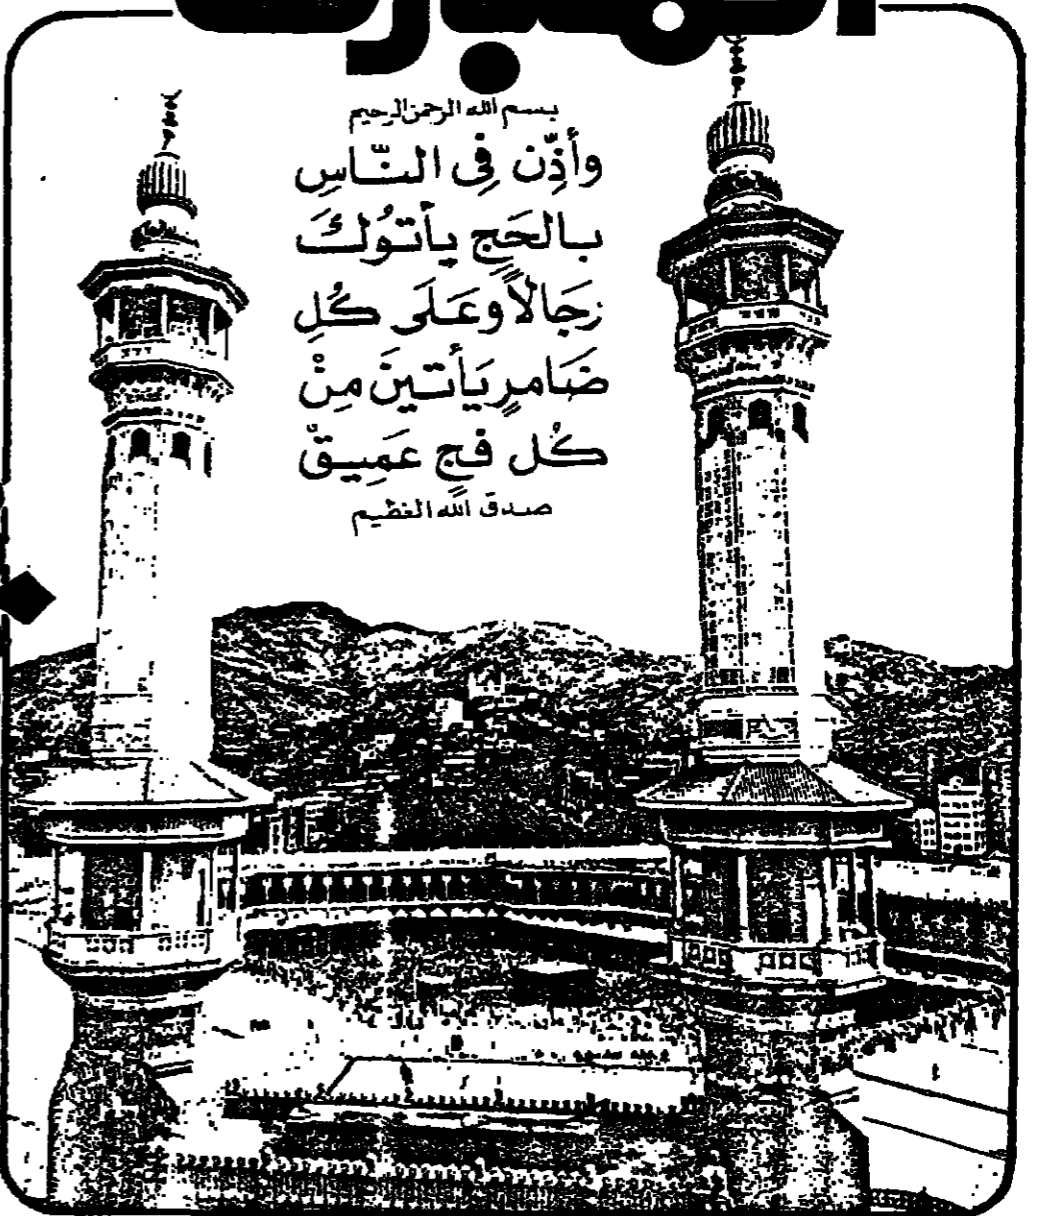 بسم الله الرحمن الرحيم
وأذِّن فِى النَّاسِ
بالحَجِ يأتوُكَ
رجَالاً وعَلَى كُلِ
ضَامرٍ يَأتينَ مِنْ
كُل فجٍ عَمِيقٍ
صدق الله العظيم